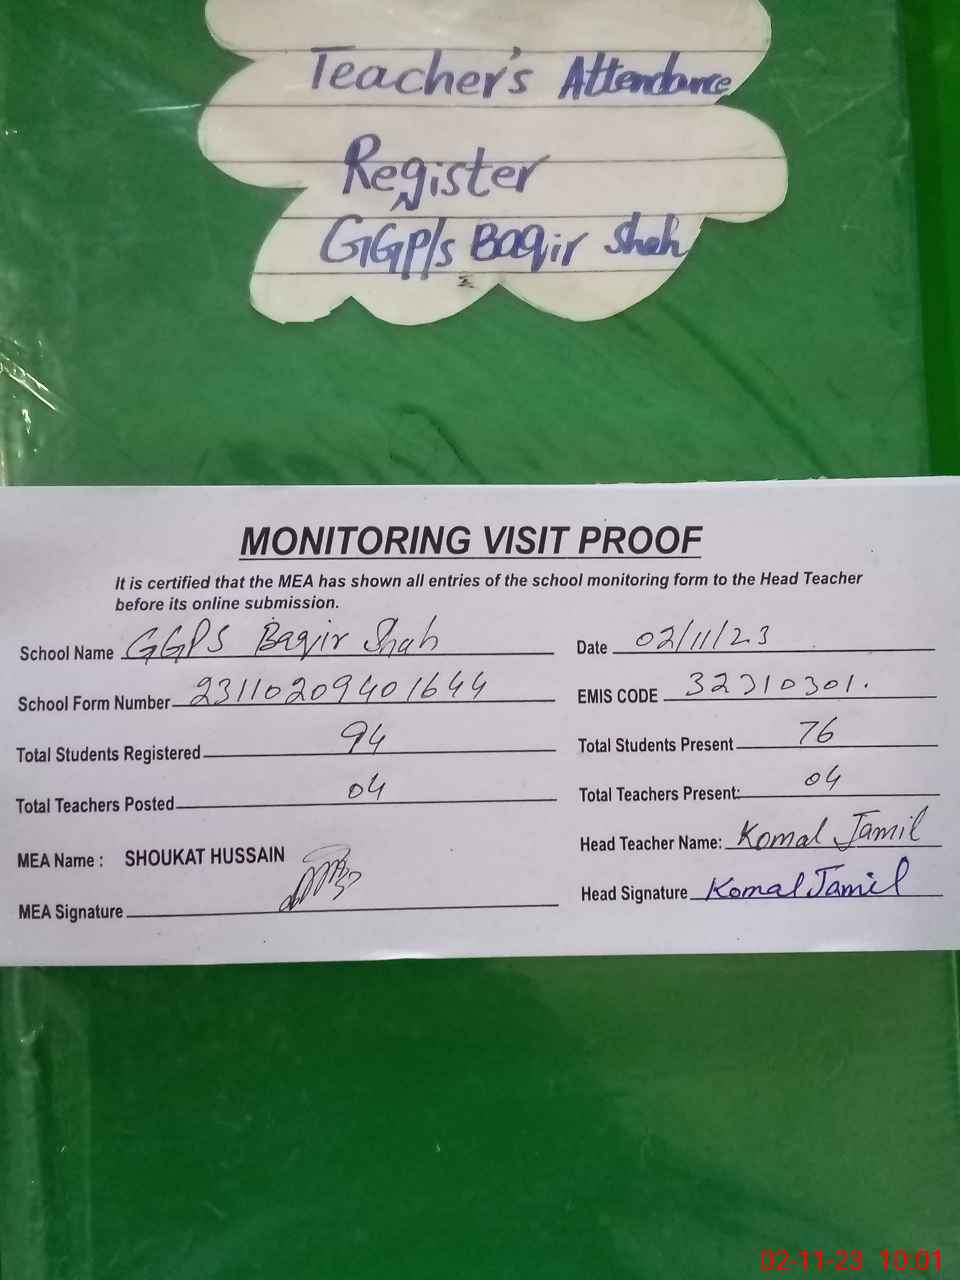 Teacher's Attendance
Register
GGP/s Baqir Shah
MONITORING VISIT PROOF
It is certified that the MEA has shown all entries of the school monitoring form to the Head Teacher
before its online submission.
School Name GGPS Baqir Shah
Date 02/11/23
School Form Number 23110209401644
EMIS CODE 32310301.
Total Students Registered 94
Total Students Present 76
Total Teachers Posted 04
Total Teachers Present: 04
MEA Name : SHOUKAT HUSSAIN
Head Teacher Name: Komal Jamil
MEA Signature
Head Signature Komal Jamil
02-11-23 10:01